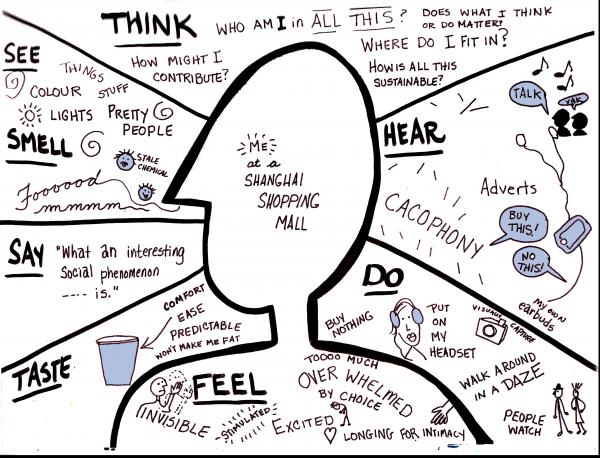 THINK
WHO AM I in ALL THIS?
DOES WHAT I THINK
OR DO MATTER?
HOW MIGHT I
CONTRIBUTE?
WHERE DO I FIT IN?
HOW IS ALL THIS
SUSTAINABLE?
SEE
THINGS
STUFF
COLOUR
LIGHTS
PRETTY
PEOPLE
SMELL
STALE
CHEMICAL
Foooood
mmmmm
SAY
"What an interesting
Social phenomenon
---- is."
TASTE
COMFORT
EASE
PREDICTABLE
WON'T MAKE ME FAT
ME
at a
SHANGHAI
SHOPPING
MALL
HEAR
TALK
YAK
Adverts
CACOPHONY
BUY
THIS!
NO
THIS!
MY OWN
earbuds
DO
BUY
NOTHING
PUT
ON
MY
HEADSET
VISUALLY
CAPTURE
WALK AROUND
IN A DAZE
PEOPLE
WATCH
FEEL
INVISIBLE
STIMULATED
EXCITED
TOOOO MUCH
OVER WHELMED
BY CHOICE
LONGING FOR INTIMACY